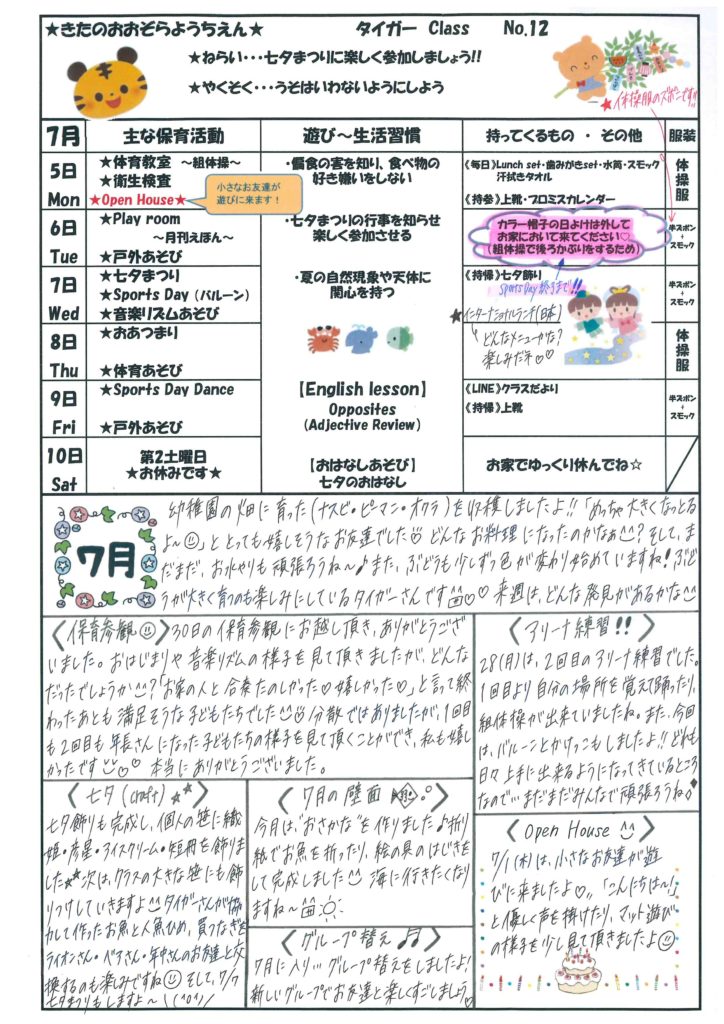 ★きたのおおぞらようちえん★　タイガー Class　No.12
★ねらい・・・七夕まつりに楽しく参加しましょう!!
★やくそく・・・うそはいわないようにしよう
★体操服のズボンです!!
7月　主な保育活動　遊び～生活習慣　持ってくるもの ・ その他　服装
5日 Mon
★体育教室 ～組体操～
★衛生検査
★Open House★
小さなお友達が
遊びに来ます！
・偏食の害を知り、食べ物の
好き嫌いをしない
《毎日》Lunch set・歯みがきset・水筒・スモック
汗拭きタオル
《持参》上靴・プロミスカレンダー
体操服
6日 Tue
★Play room
～月刊えほん～
★戸外あそび
・七夕まつりの行事を知らせ
楽しく参加させる
カラー帽子の日よけは外して
お家において来てください♡
(組体操で後ろかぶりをするため)
Sports Day 終了まで!!
半ズボン
+
スモック
7日 Wed
★七夕まつり
★Sports Day（バルーン）
★音楽リズムあそび
・夏の自然現象や天体に
関心を持つ
《持帰》七夕飾り
★インターナショナルランチ(日本)
どんなメニューかな？
楽しみだネ♡♡
半ズボン
+
スモック
8日 Thu
★おあつまり
★体育あそび
体操服
9日 Fri
★Sports Day Dance
★戸外あそび
【English lesson】
Opposites
(Adjective Review)
《LINE》クラスだより
《持帰》上靴
半ズボン
+
スモック
10日 Sat
第2土曜日
★お休みです★
【おはなしあそび】
七夕のおはなし
お家でゆっくり休んでね☆
7月
幼稚園の畑に育った(ナスビ・ピーマン・オクラ)を収穫しましたよ!!「めっちゃ大きくなっとる
よ～」ととっても嬉しそうなお友達でした どんなお料理になったのかなぁ そして、ま
だまだ、お水やりも頑張ろうね～♪また、ぶどうも少しずつ色が変わり始めていますね！ぶど
うが大きく育つのも楽しみにしているタイガーさんです♡♡来週は、どんな発見があるかな
〈保育参観〉30日の保育参観にお越し頂き、ありがとうござ
いました。おはじまりや音楽リズムの様子を見て頂きましたが、どんな
だったでしょうか？「お家の人と合奏たのしかった♡嬉しかった♡」と言って終
わったあとも満足そうな子どもたちでした 分散ではありましたが、1回目
も2回目も年長さんになった子どもたちの様子を見て頂くことができ、私も嬉し
かったです♡♡本当にありがとうございました。
〈アリーナ練習!!〉
28(月)は、2回目のアリーナ練習でした。
1回目より自分の場所を覚えて踊ったり、
組体操が出来ていましたね。また、今回
は、バルーンとかけっこもしましたよ!!どれも
日々上手に出来るようになってきているところ
なので…まだまだみんなで頑張ろうね♪
〈七夕(craft)☆☆〉
七夕飾りも完成し、個人の笹に織
姫・彦星・アイスクリーム・短冊を飾りま
した☆☆次は、クラスの大きな笹にも飾
りつけしていきますよ タイガーさんが協
力して作ったお魚と人魚ひめ、貝つなぎを
ライオンさん・ベアさん・年中さんのお友達と交
換するのも楽しみですね そして、7/7
七夕まつりもしますよ～\(^o^)/
〈7月の壁面〉
今月は、“おさかな”を作りました♪折り
紙でお魚を折ったり、絵の具のはじきを
して完成しました 海に行きたくなり
ますね～
〈グループ替え♫〉
7月に入り…グループ替えをしましたよ！
新しいグループでお友達と楽しくすごしましょう♡
〈Open House〉
7/1(木)は、小さなお友達が遊
びに来ましたよ♡〃「こんにちは～！」
と優しく声を掛けたり、マット遊び
の様子を少し見て頂きましたよ